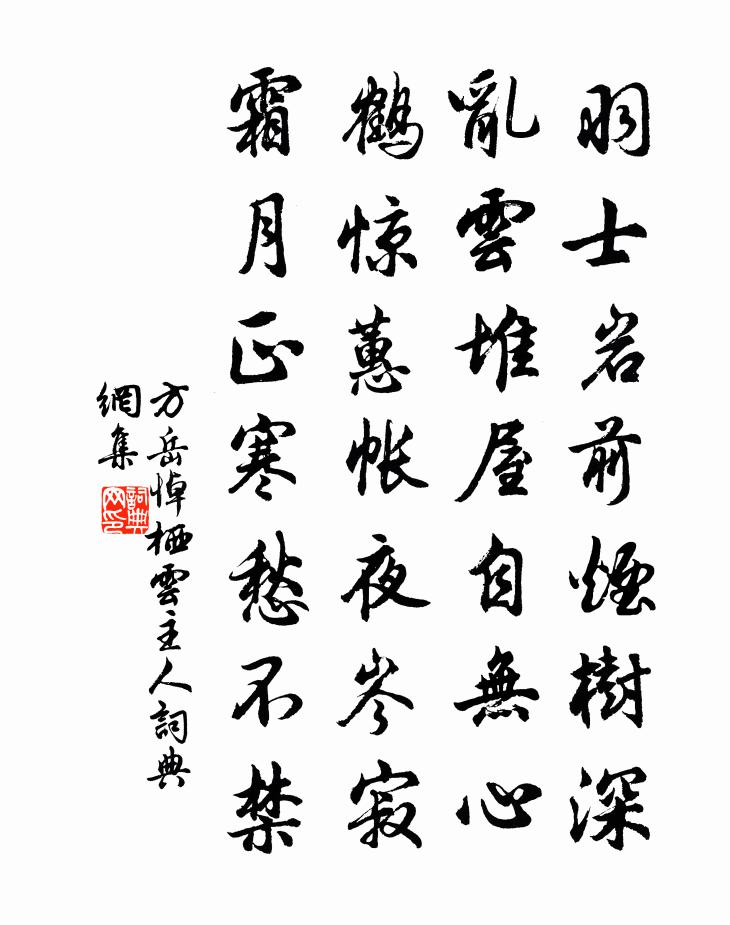 羽士岩前煙樹深
亂雲堆屋自無心
鶴惊蕙帐夜岑寂
霜月正寒愁不禁
方岳悼栖雲主人詞典
網集
詞典网印